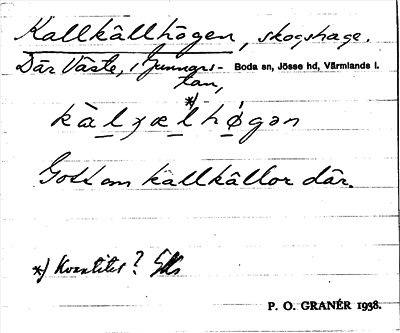 Kallkällhögen, skogshage.
Där Väste, i Gunnars-
tan, Boda sn, Jösse hd, Värmlands l.
*)
kàlɟælhǿgən
Gott om källkällor där.
*) Kvantitet?
P. O. GRANÉR 1938.